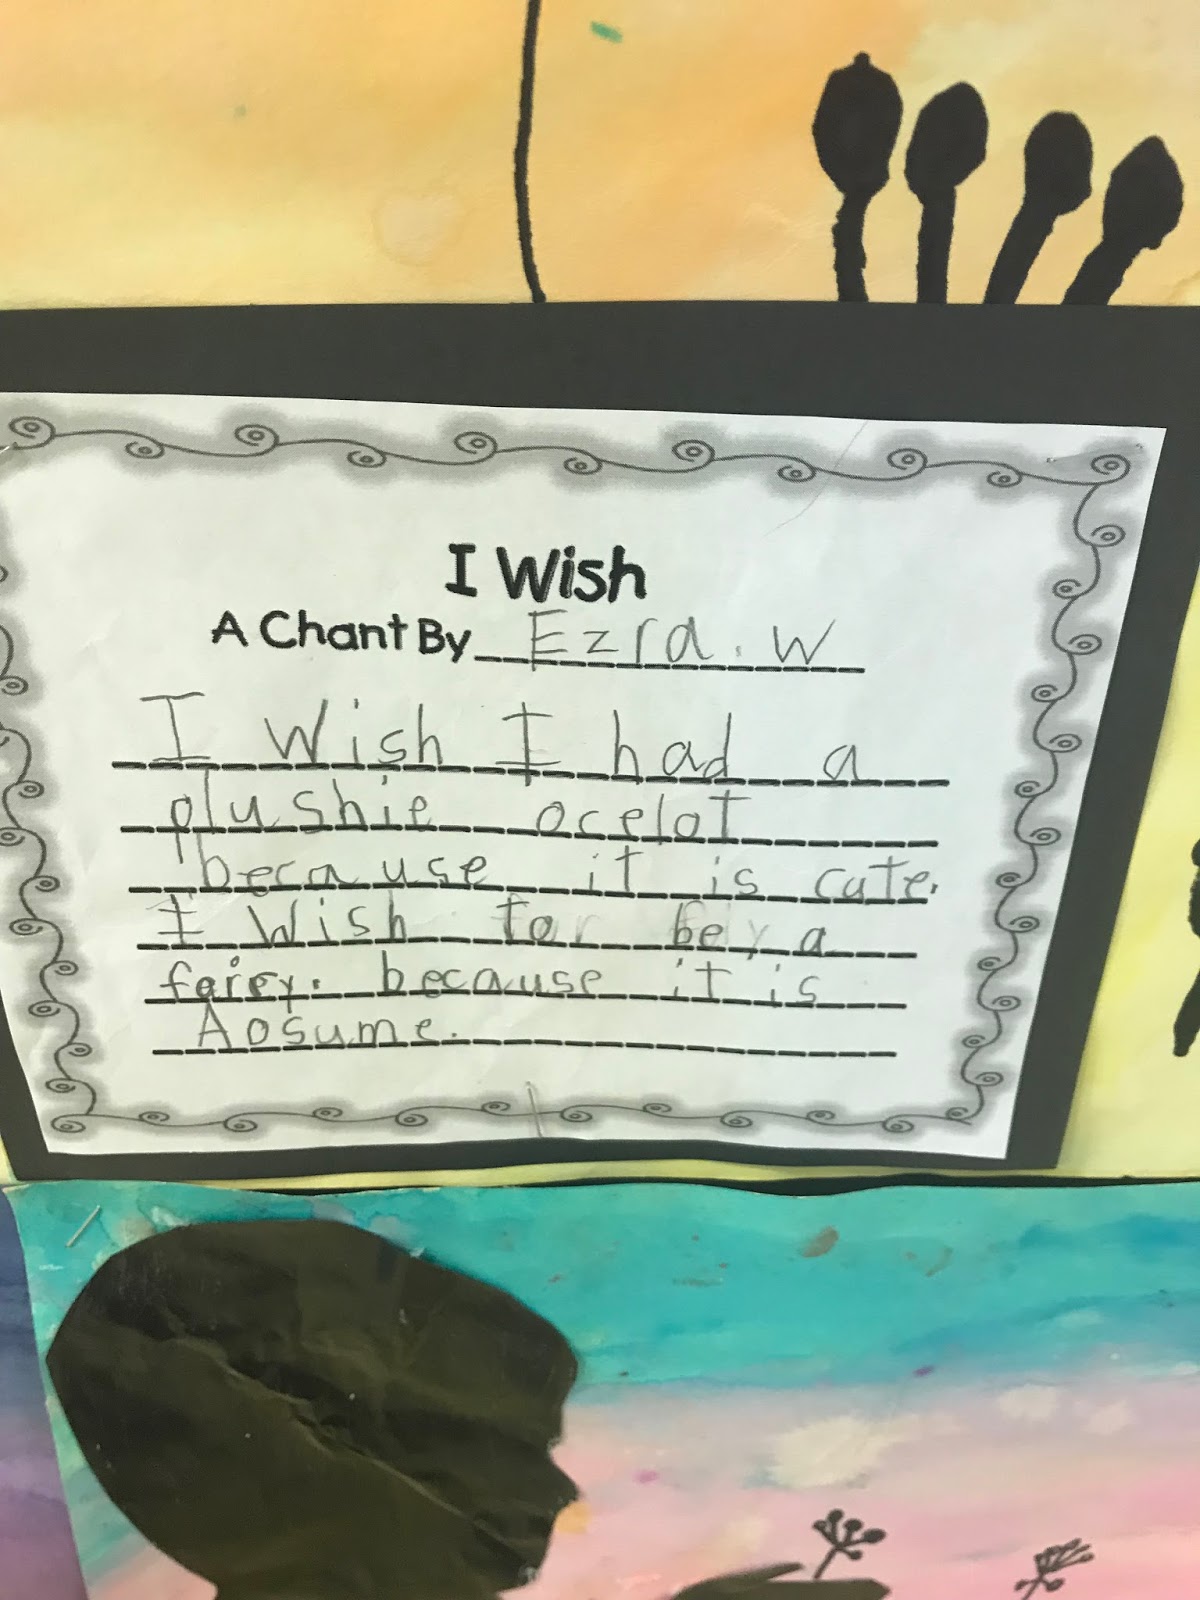 I Wish
A Chant By Ezra. W
I Wish I had a
plushie ocelot
because it is cute.
I Wish to be a
fairy. because it is
Aosume.